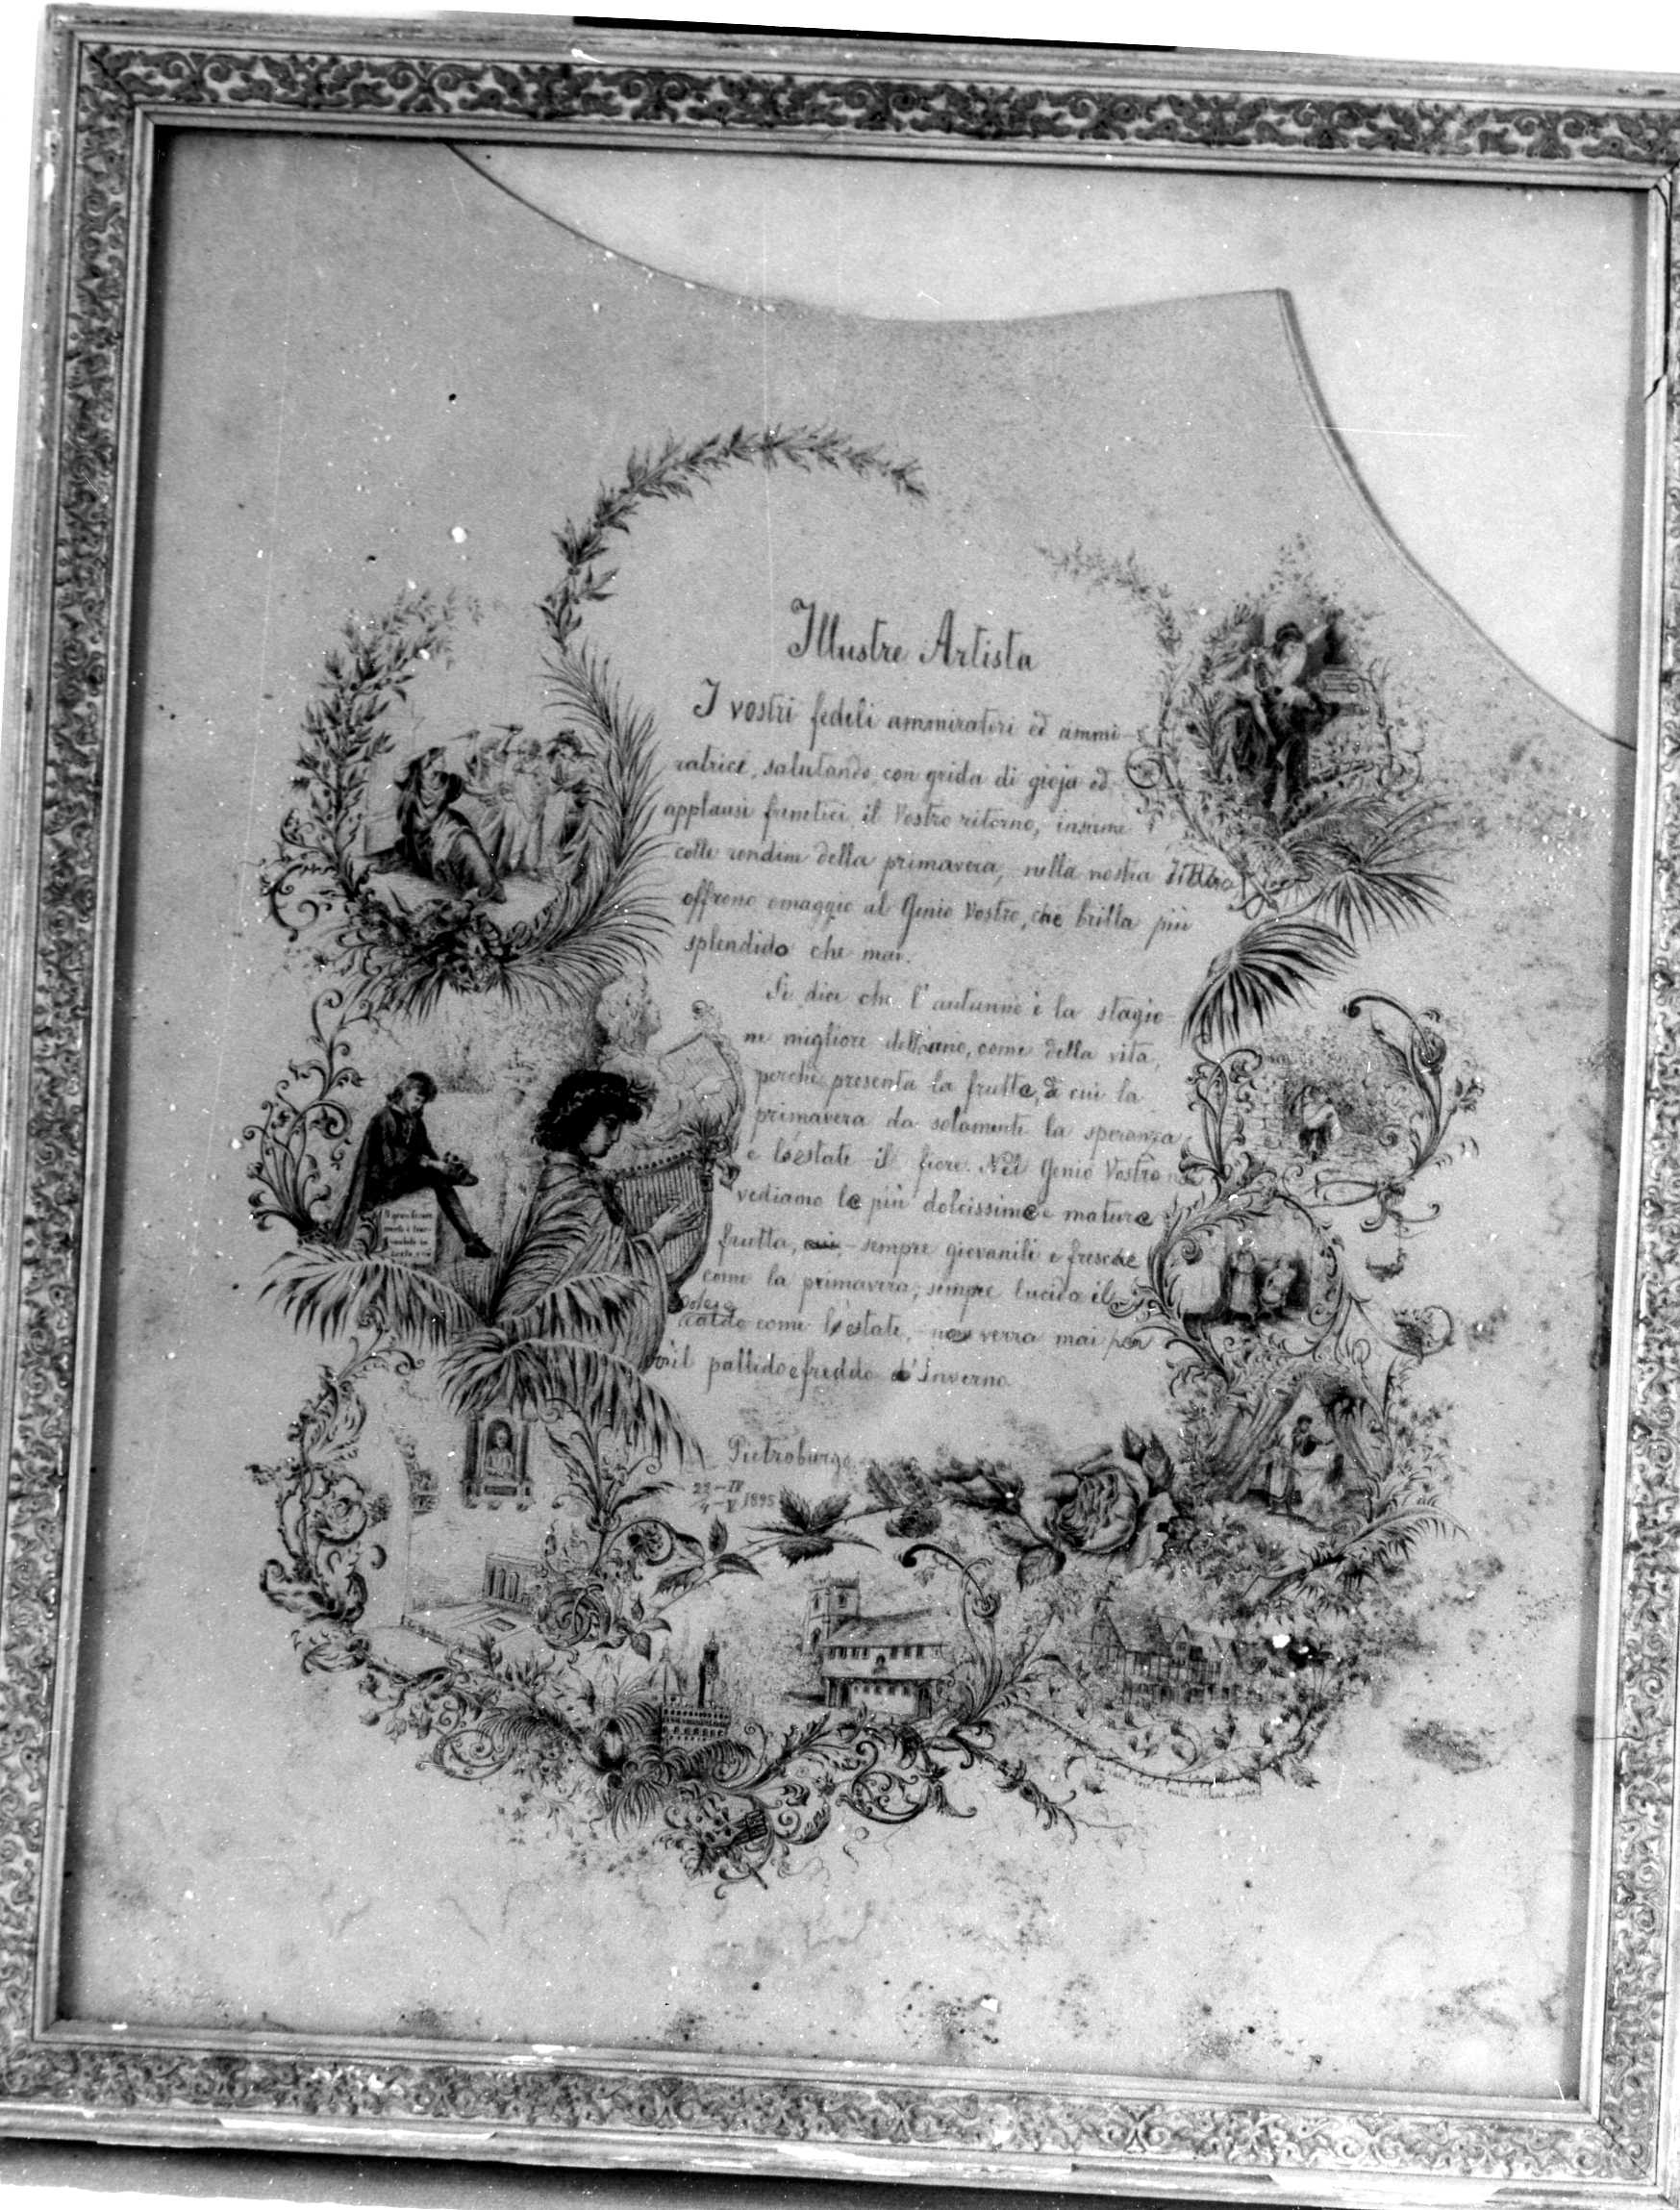 Illustre Artista
I vostri fedeli ammiratori ed ammi-
ratrici, salutando con grida di gioja ed
applausi frenetici il Vostro ritorno, insieme
colle rondini della primavera, nella nostra
offrono omaggio al Genio Vostro, che brilla più
splendido che mai.
Si dice che l'autunno è la stagio-
ne migliore dell'anno, come della vita,
perchè presenta la frutta, di cui la
primavera da solamente la speranza
e l'estate il fiore. Nel Genio Vostro
vediamo le più dolcissime e mature
frutta, sempre giovanili e fresche
come la primavera; sempre lucido il
caldo come l'estate, non verra mai per
il pallido e freddo d'Inverno.
Pietroburgo
22-IV
4-V 1895